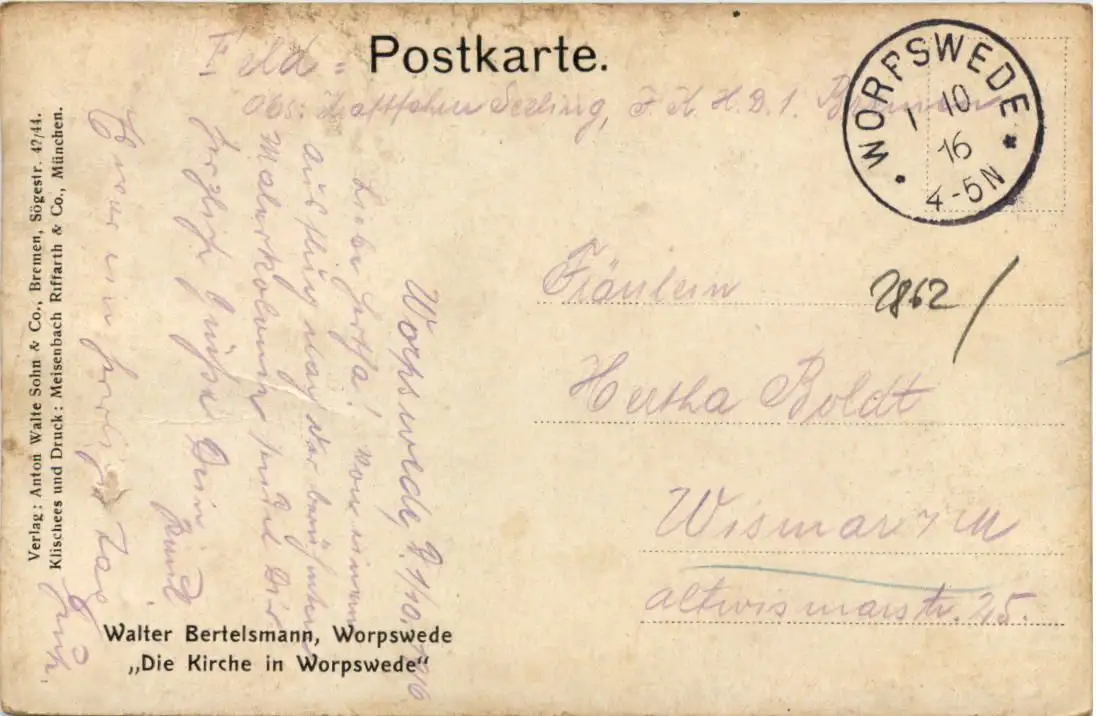 Feld=
Postkarte.
Abs: Kraftfahrer Seeling, F.K.H.D.1. Bremen
WORPSWEDE
1 10
16
4-5N
Verlag: Anton Walte Sohn & Co., Bremen, Sögestr. 42/44.
Klischees und Druck: Meisenbach Riffarth & Co., München.
Worpswede, d. 1/10. 1916
Liebe Hertha! Von einem
Ausflug nach der berühmten
Malerkolonie sendet Dir
herzliche Grüße Dein
Fräulein
Hertha Boldt
Wismar i/M
Altwismarstr. 25.
2862/
Walter Bertelsmann, Worpswede
„Die Kirche in Worpswede“